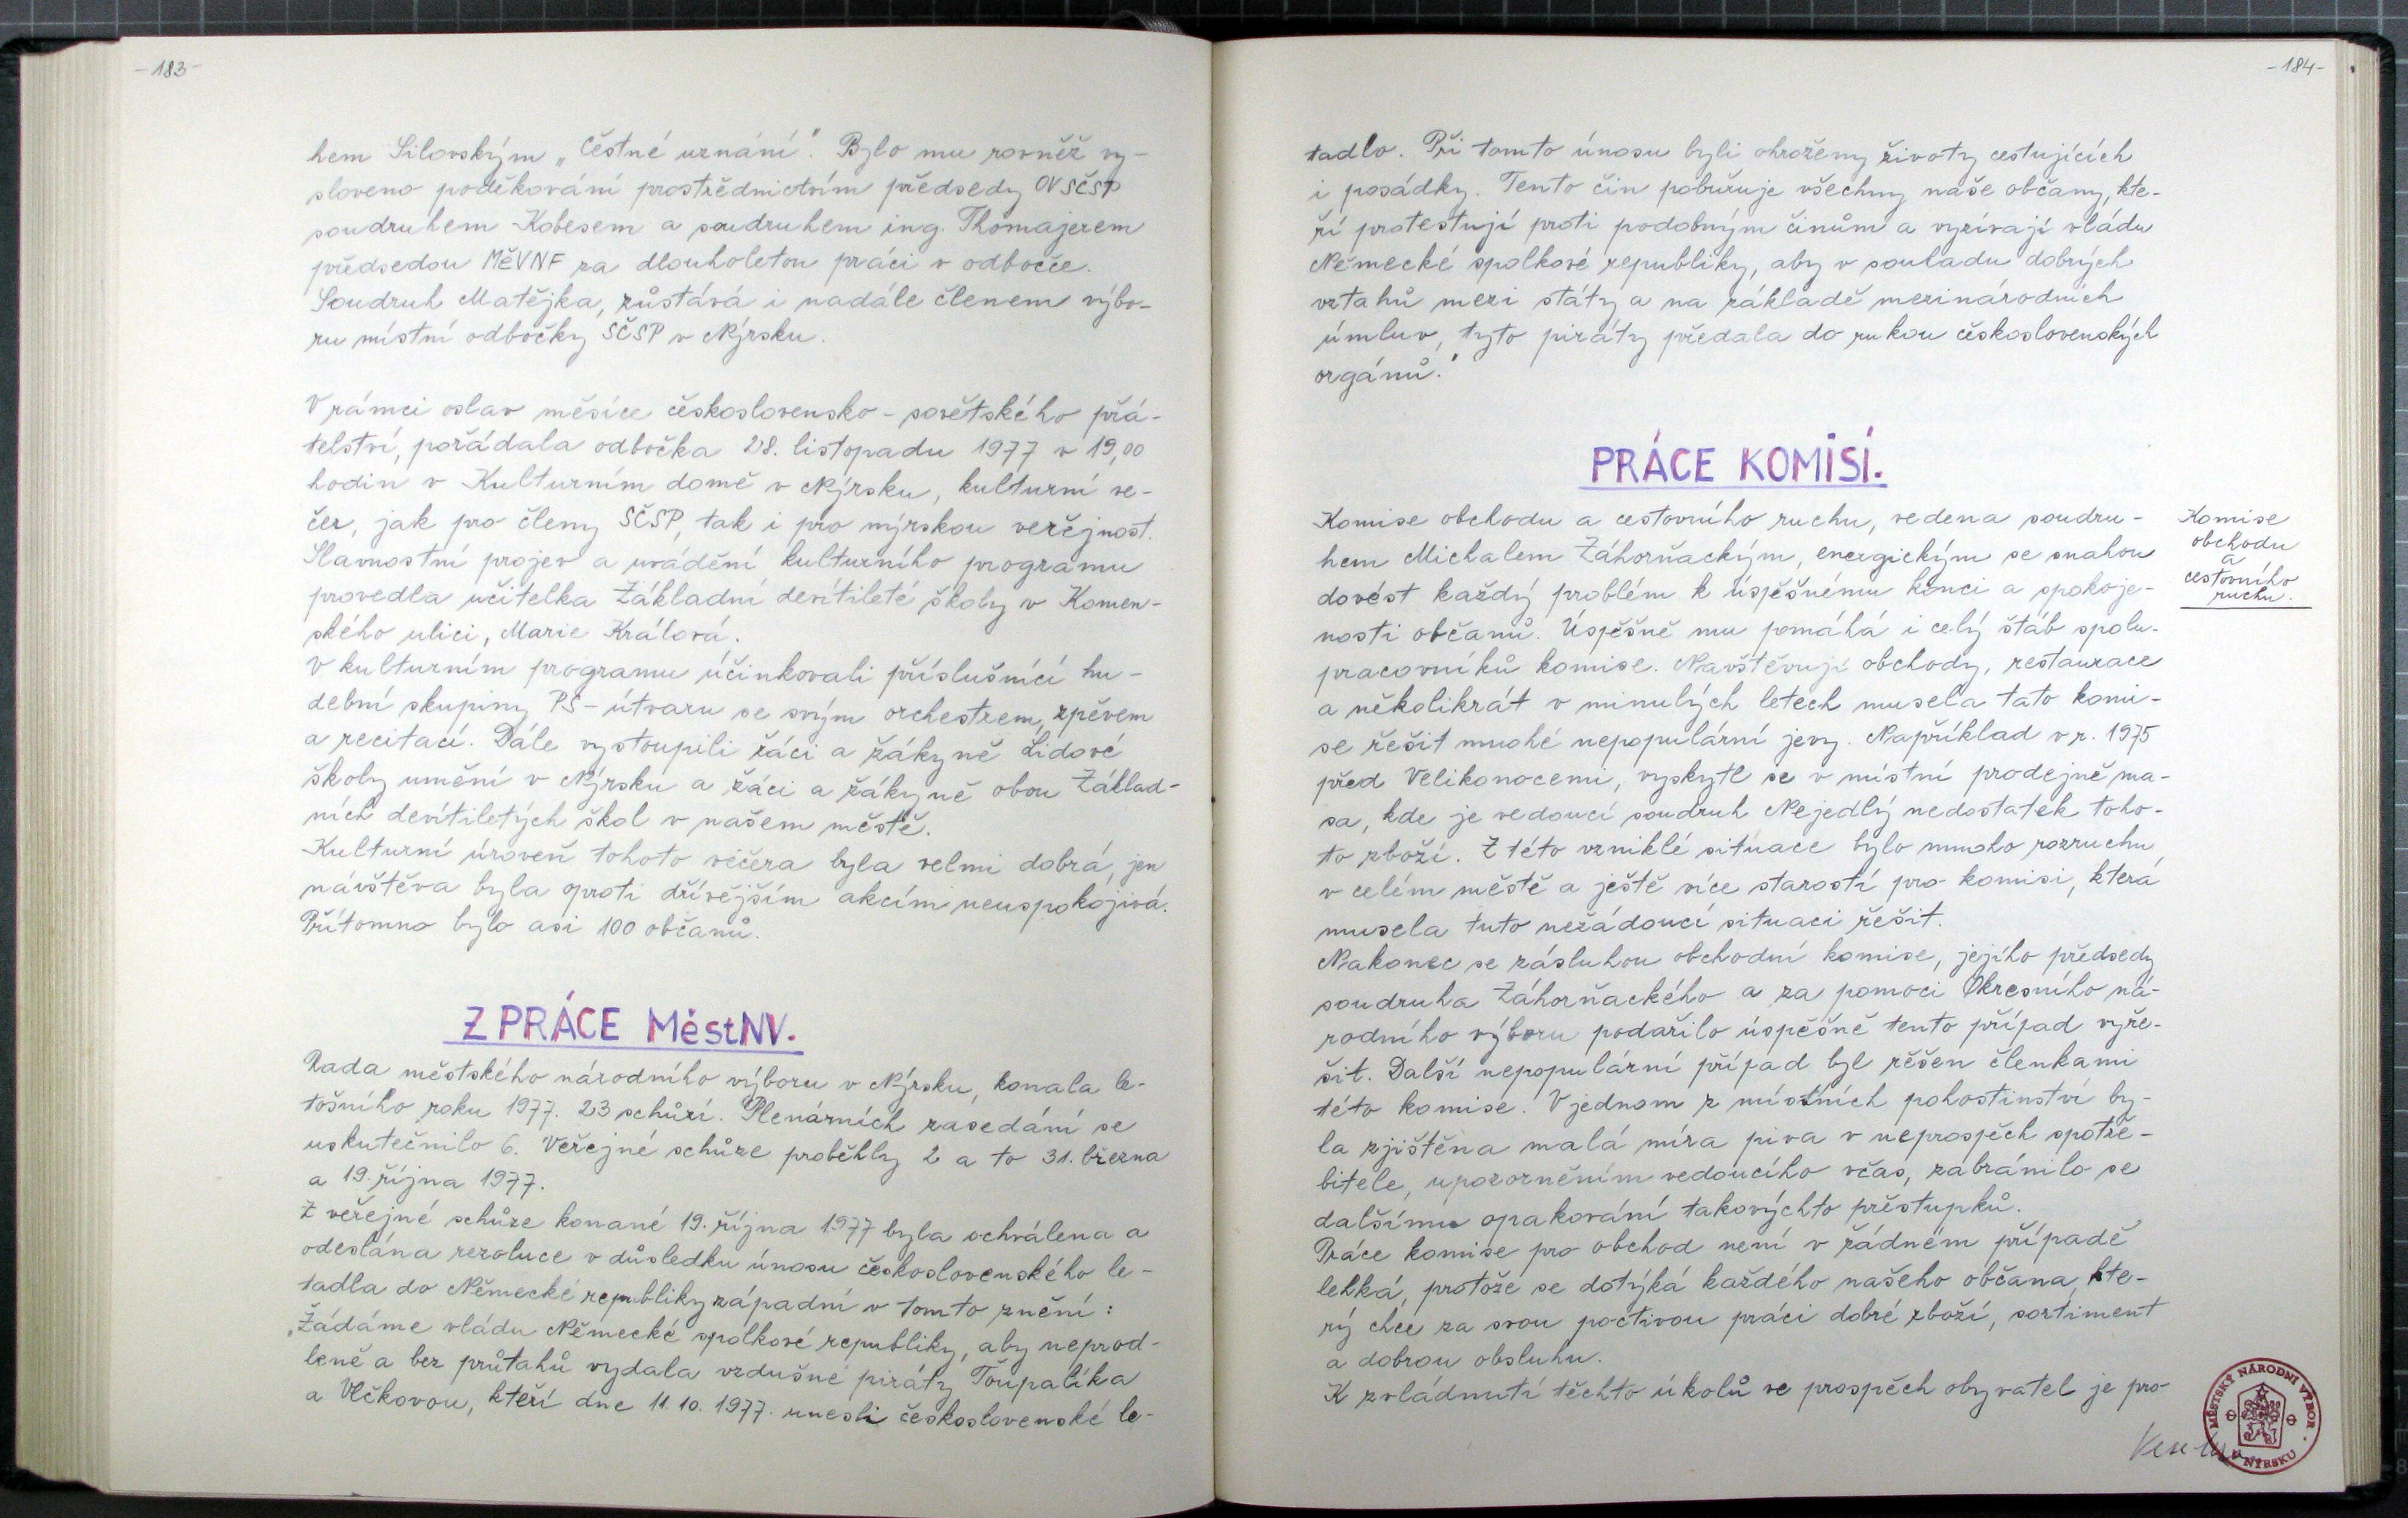 -183-
hem Silovským „Čestné uznání". Bylo mu rovněž vy-
sloveno poděkování prostřednictvím předsedy OV SČSP
soudruhem Kobesem a soudruhem ing. Thomajerem
předsedou MěVNF za dlouholetou práci v odbočce.
Soudruh Matějka, zůstává i nadále členem výbo-
ru místní odbočky SČSP v Nýrsku.
V rámci oslav měsíce československo-sovětského přá-
telství, pořádala odbočka 28. listopadu 1977 v 19,00
hodin v Kulturním domě v Nýrsku, kulturní ve-
čer, jak pro členy SČSP, tak i pro nýrskou veřejnost.
Slavnostní projev a uvádění kulturního programu
provedla učitelka Základní devítileté školy v Komen-
ského ulici, Marie Králová.
V kulturním programu účinkovali příslušníci hu-
dební skupiny PS-útvaru se svým orchestrem, zpěvem
a recitací. Dále vystoupili žáci a žákyně Lidové
školy umění v Nýrsku a žáci a žákyně obou Základ-
ních devítiletých škol v našem městě.
Kulturní úroveň tohoto večera byla velmi dobrá, jen
návštěva byla oproti dřívějším akcím neuspokojivá.
Přítomno bylo asi 100 občanů.
Z PRÁCE MěstNV.
Rada městského národního výboru v Nýrsku, konala le-
tošního roku 1977. 23 schůzí. Plenárních zasedání se
uskutečnilo 6. Veřejné schůze proběhly 2 a to 31. března
a 19. října 1977.
Z veřejné schůze konané 19. října 1977 byla schválena a
odeslána rezoluce v důsledku únosu československého le-
tadla do Německé republiky západní v tomto znění:
„Žádáme vládu Německé spolkové republiky, aby neprod-
leně a bez průtahů vydala vzdušné piráty Toupalíka
a Vlčkovou, kteří dne 11. 10. 1977. unesli československé le-
-184-
tadlo. Při tomto únosu byli ohroženy životy cestujících
i posádky. Tento čin pobuřuje všechny naše občany, kte-
ří protestují proti podobným činům a vyzívají vládu
Německé spolkové republiky, aby v souladu dobrých
vztahů mezi státy a na základě mezinárodních
úmluv, tyto piráty předala do rukou československých
orgánů."
PRÁCE KOMISÍ.
Komise obchodu a cestovního ruchu, vedena soudru-
hem Michalem Záhorňackým, energickým se snahou
dovést každý problém k úspěšnému konci a spokoje-
nosti občanů. Úspěšně mu pomáhá i celý štáb spolu-
pracovníků komise. Navštěvují obchody, restaurace
a několikrát v minulých letech musela tato komi-
se řešit mnohé nepopulární jevy. Například v r. 1975
před Velikonocemi, vyskytl se v místní prodejně ma-
sa, kde je vedoucí soudruh Nejedlý nedostatek toho-
to zboží. Z této vzniklé situace bylo mnoho rozruchu
v celém městě a ještě více starostí pro komisi, která
musela tuto nežádoucí situaci řešit.
Nakonec se zásluhou obchodní komise, jejího předsedy
soudruha Záhorňackého a za pomoci Okresního ná-
rodního výboru podařilo úspěšně tento případ vyře-
šit. Další nepopulární případ byl řěšen členkami
této komise. V jednom z místních pohostinství by-
la zjištěna malá míra piva v neprospěch spotře-
bitele, upozorněním vedoucího včas, zabránilo se
dalšímu opakování takovýchto přestupků.
Práce komise pro obchod není v žádném případě
lehká, protože se dotýká každého našeho občana, kte-
rý chce za svou poctivou práci dobré zboží, sortiment
a dobrou obsluhu.
K zvládnutí těchto úkolů ve prospěch obyvatel je pro
Komise
obchodu
a
cestovního
ruchu.
MĚSTSKÝ NÁRODNÍ VÝBOR
V NÝRSKU